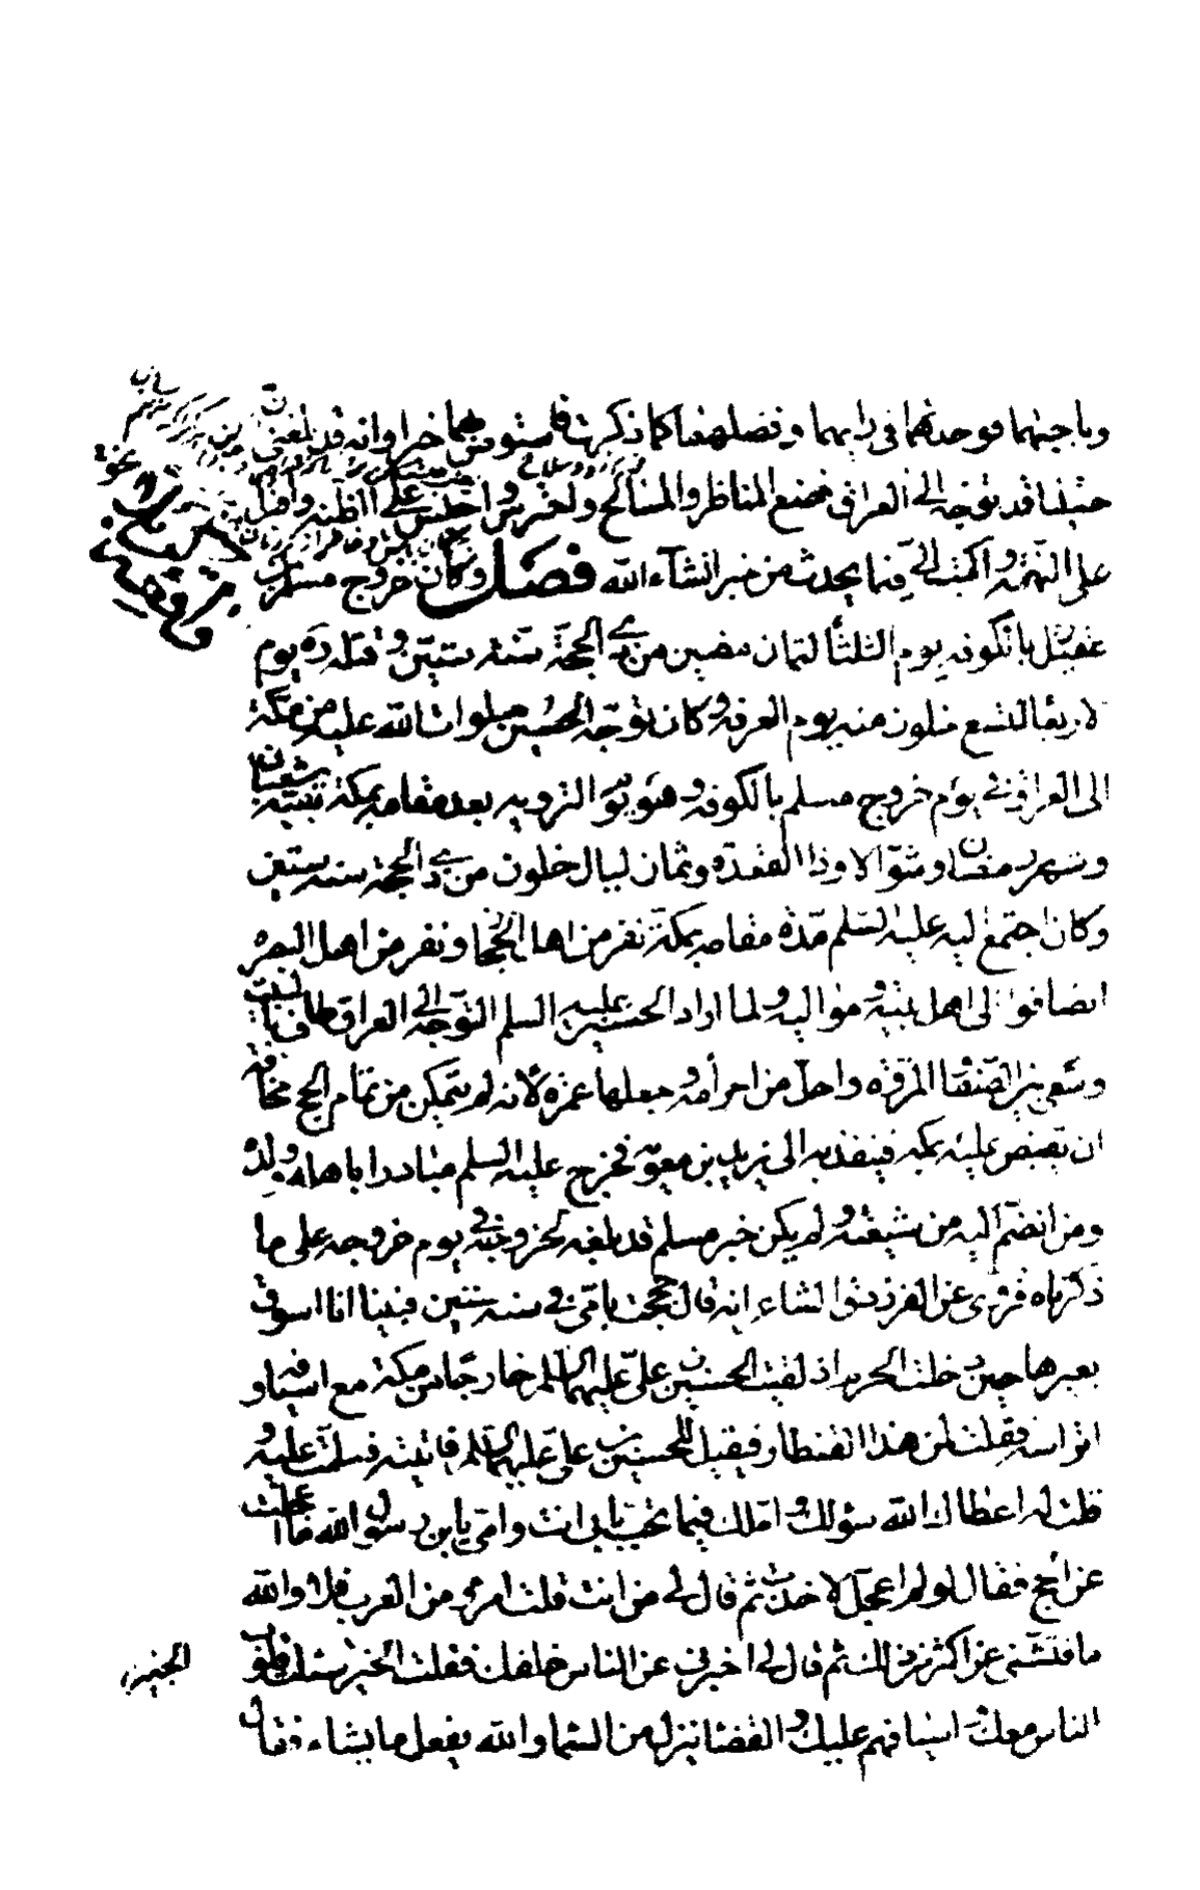 وناجيتهما فوجدتهما في رايهما وفضلهما كما ذكرت فاستوص بهما خيرا وانه قد بلغني ان
حسينا قد توجه الى العراق فضع المناظر والمسالح واحترس واحبس على الظنه واقتل
على التهمه واكتب الي فيما يحدث من خبر انشآء الله فصل وكان خروج مسلم بن
عقيل بالكوفه يوم الثلثا لثمان مضين من ذي الحجة سنة ستين وقتله ره يوم
الاربعا لتسع خلون منه يوم العرفه وكان توجه الحسين صلوات الله عليه من مكة
الى العراق في يوم خروج مسلم بالكوفه وهو يوم الترويه بعد مقامه بمكة بقيته شعبان
وشهر رمضان وشوالا وذا القعده وثمان ليال خلون من ذي الحجة سنه ستين
وكان اجتمع اليه عليه السلم مدة مقامه بمكة نفر من اهل الحجاز ونفر من اهل البصره
انضافوا الى اهل بيته ومواليه ولما اراد الحسين عليه السلم التوجه الى العراق طاف بالبيت
وسعى بين الصفا والمروه واحل من احرامه وجعلها عمرة لانه لم يتمكن من تمام الحج مخافة
ان يقبض عليه بمكه فينفذ به الى يزيد بن معوية فخرج عليه السلم مبادرا باهله وولده
ومن انضم اليه من شيعته ولم يكن خبر مسلم قد بلغه لخروجه في يوم خروجه على ما
ذكرناه فروى عن الفرزدق الشاعر انه قال حججت بامي في سنه ستين فبينا انا اسوق
بعيرها حين دخلت الحرم اذ لقيت الحسين بن علي عليهما السلم خارجا من مكة مع اسيافه و
اتراسه فقلت لمن هذا القطار فقيل للحسين بن علي عليهما السلم فاتيته فسلمت عليه و
قلت له اعطاك الله سؤلك واملك فيما تحب بابي انت وامي يابن رسول الله ما اعجلك
عن الحج فقال لو لم اعجل لاخذت ثم قال لي من انت قلت امرؤ من العرب فلا والله
ما فتشني عن اكثر من ذلك ثم قال لي اخبرني عن الناس خلفك فقلت الخبير سئلت قلوب
الناس معك واسيافهم عليك والقضا ينزل من السما والله يفعل ما يشاء فقال
الخبير